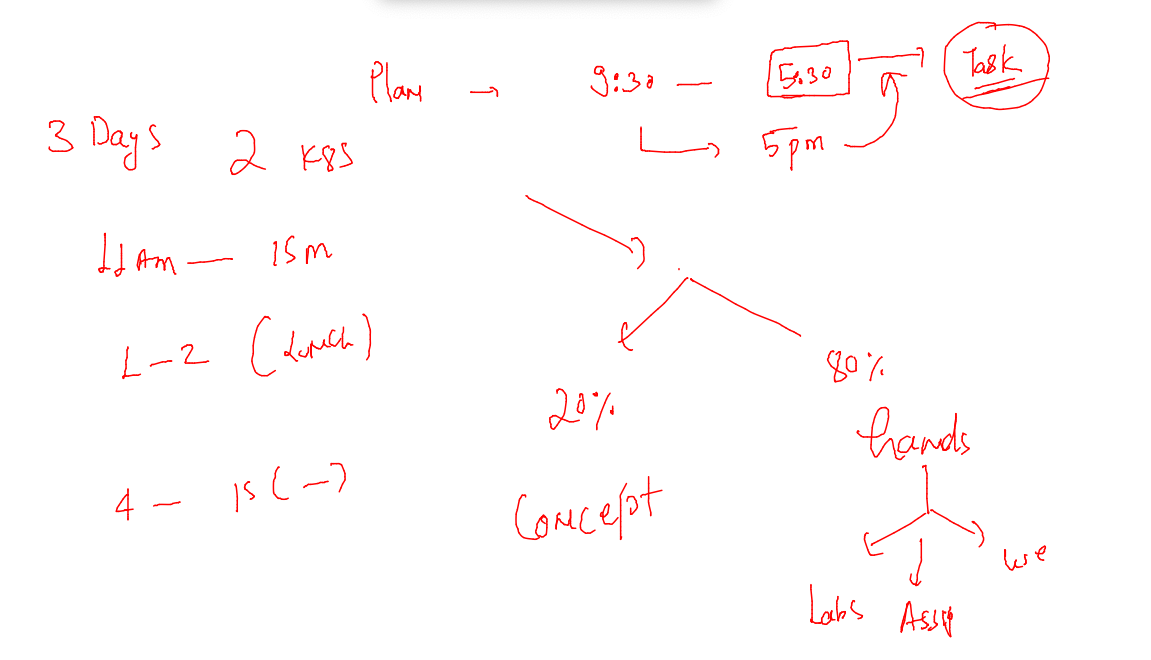 Plan → 9:30 — 5:30 → Task
5pm
3 Days 2 K8S
11 Am — 15m
1 — 2 (Lunch)
4 — 15 (—)
20% 80%
Concept hands
Labs Assg use